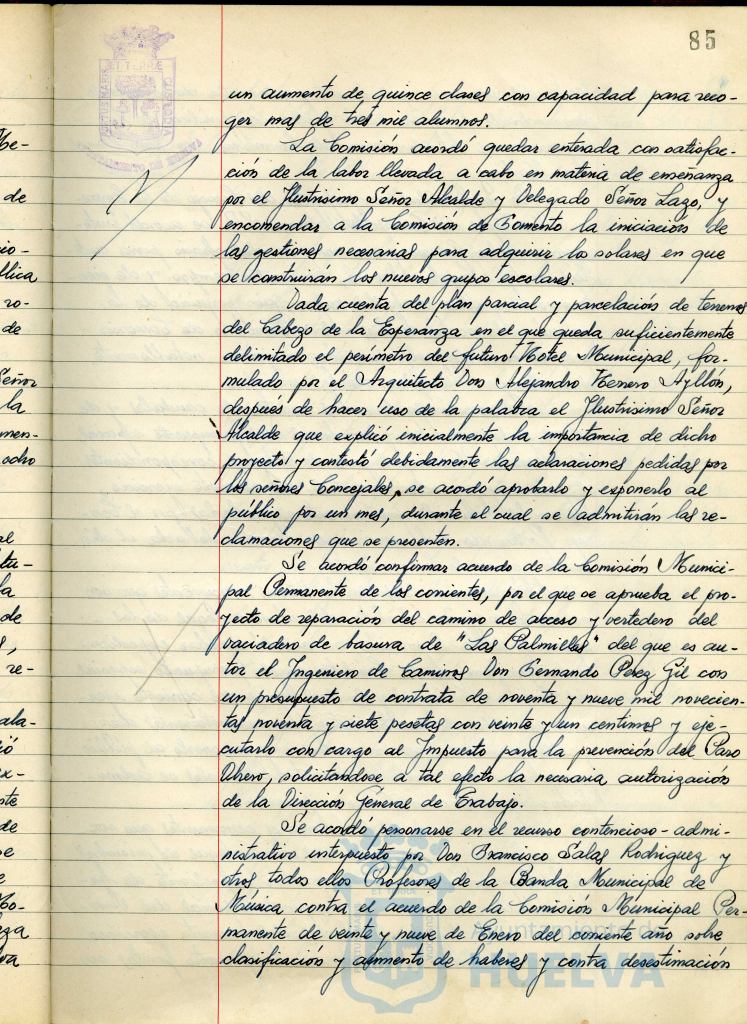 85
un aumento de quince clases con capacidad para reco-
ger mas de tres mil alumnos.
La Comisión acordó quedar enterada con satisfac-
ción de la labor llevada a cabo en materia de enseñanza
por el Ilustrisimo Señor Alcalde y Delegado Señor Lazo, y
encomendar a la Comisión de Fomento la iniciación de
las gestiones necesarias para adquirir los solares en que
se construirán los nuevos grupos escolares.
Dada cuenta del plan parcial y parcelación de terrenos
del Cabezo de la Esperanza en el que queda suficientemente
delimitado el perímetro del futuro Hotel Municipal, for-
mulado por el Arquitecto Don Alejandro Herrero Ayllón,
después de hacer uso de la palabra el Ilustrisimo Señor
Alcalde que explicó inicialmente la importancia de dicho
proyecto y contestó debidamente las aclaraciones pedidas por
los señores Concejales, se acordó aprobarlo y exponerlo al
público por un mes, durante el cual se admitirán las re-
clamaciones que se presenten.
Se acordó confirmar acuerdo de la Comisión Munici-
pal Permanente de los corrientes, por el que se aprueba el pro-
yecto de reparación del camino de acceso y vertedero del
vaciadero de basura de "Las Palmillas" del que es au-
tor el Ingeniero de Caminos Don Fernando Perez Gil con
un presupuesto de contrata de noventa y nueve mil novecien-
tas noventa y siete pesetas con veinte y un centimos y eje-
cutarlo con cargo al Impuesto para la prevención del Paro
Obrero, solicitandose a tal efecto la necesaria autorización
de la Dirección General de Trabajo.
Se acordó personarse en el recurso contencioso-admi-
nistrativo interpuesto por Don Francisco Salas Rodriguez y
otros todos ellos Profesores de la Banda Municipal de
Música contra el acuerdo de la Comisión Municipal Per-
manente de veinte y nueve de Enero del corriente año sobre
clasificación y aumento de haberes y contra desestimación
Ayuntamiento de
HUELVA